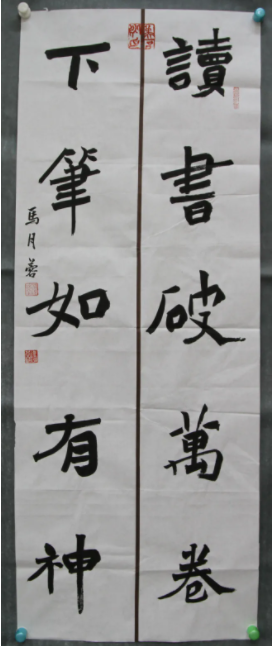 讀書破萬卷
下筆如有神
馬月蓉